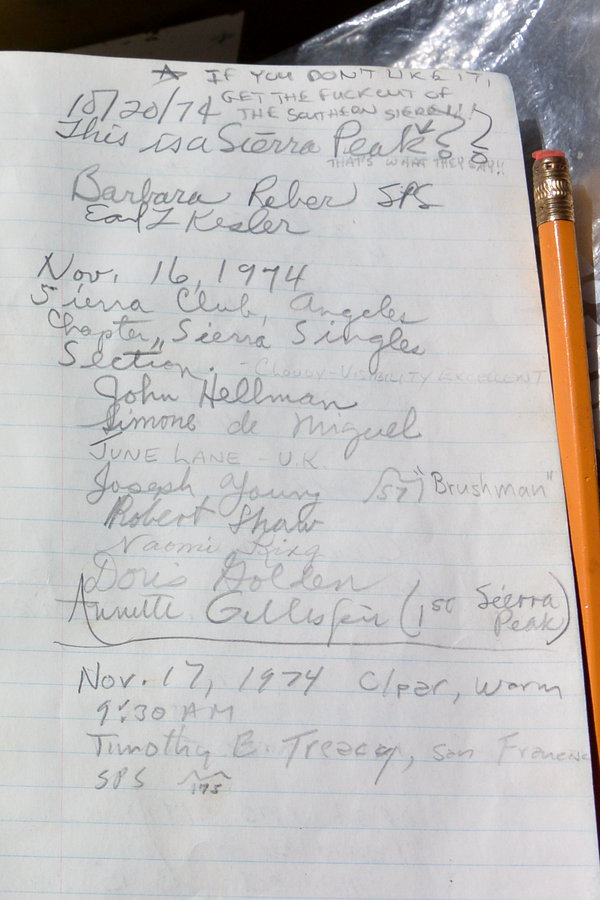 ☆ IF YOU DON'T LIKE IT,
GET THE FUCK OUT OF
THE SOUTHERN SIERRA!!
10/20/74
This is a Sierra Peak??
THAT'S WHAT THEY SAY!!
Barbara Reber SPS
Earl Z Kesler
Nov. 16, 1974
Sierra Club, Angeles
Chapter, Sierra Singles
Section. - Cloudy - VISIBILITY EXCELLENT
John Hellman
Simone de Miguel
JUNE LANE - U.K.
Joseph Young 57 "Brushman"
Robert Shaw
Naomi King
Doris Golden
Annette Gillespie (1st Sierra
Peak)
Nov. 17, 1974 Clear, warm
9:30 AM
Timothy B. Treacy, San Francisco
SPS 175